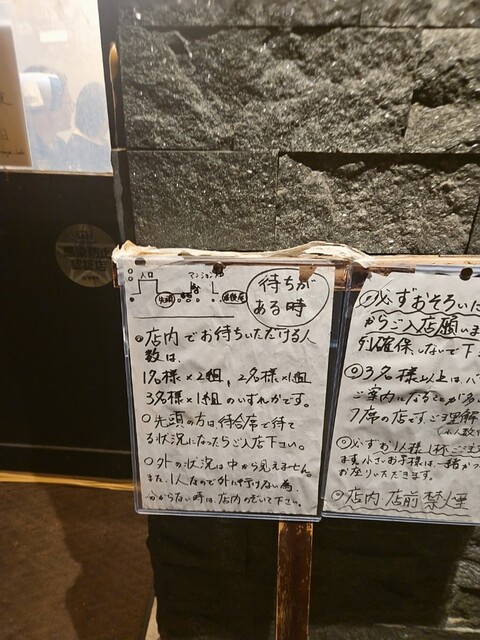 入口
マンション入口
先頭
最後尾
待ちが
ある時
○店内でお待ちいただける人
数は、
1名様×2組、2名様×1組
3名様×1組のいずれかです。
○先頭の方は待合席で待て
る状況になったらご入店下さい。
○外の状況は中から見えません。
また、1人なので外に行けない為、
わからない時は店内のぞいて下さい。
必ずおそろいに
からご入店願いま
列確保しないで下
○3名様以上は、バ
ご案内になることが多
7席の店です。ご理解
○必ずお1人様1杯ご注
ます。小さいお子様は、一緒か
お座りいただきます。
○店内店前禁煙